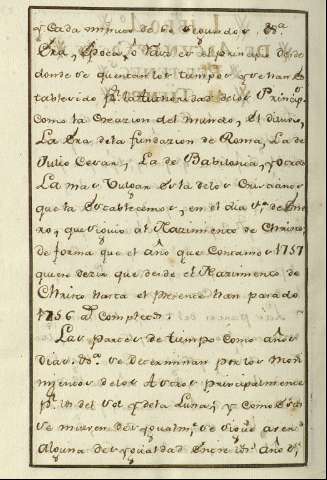 y Cada minuto de 60 segundos.
Era, Epoca, o Raiz es el principio desde
donde se quentan los tiempos q.e se han es
tablecido p.r la Autheridad de los Princip.s
Como la Creacion del mundo, el diluvio,
La Era de la fundazion de Roma, La de
Julio Cesar, La de Babilonia, y otras
La mas Vulgar es la de los Christianos
que la Establecemos, en el dia 1.o de Ene
ro, que siguio al Nazimiento de Christo,
de forma que el año que Contamos 1757
quiere dezir que desde el Nazimiento de
Christo hasta el presente han pasado
1756 a.s Completos.
Las partes de tiempo como años
dias, se determinan por los Movi
mientos de los Astros principalmente
p.r el del sol y de la Luna, y Como
se mueven desigualm.te se sigue aver
alguna desygualdad Entre